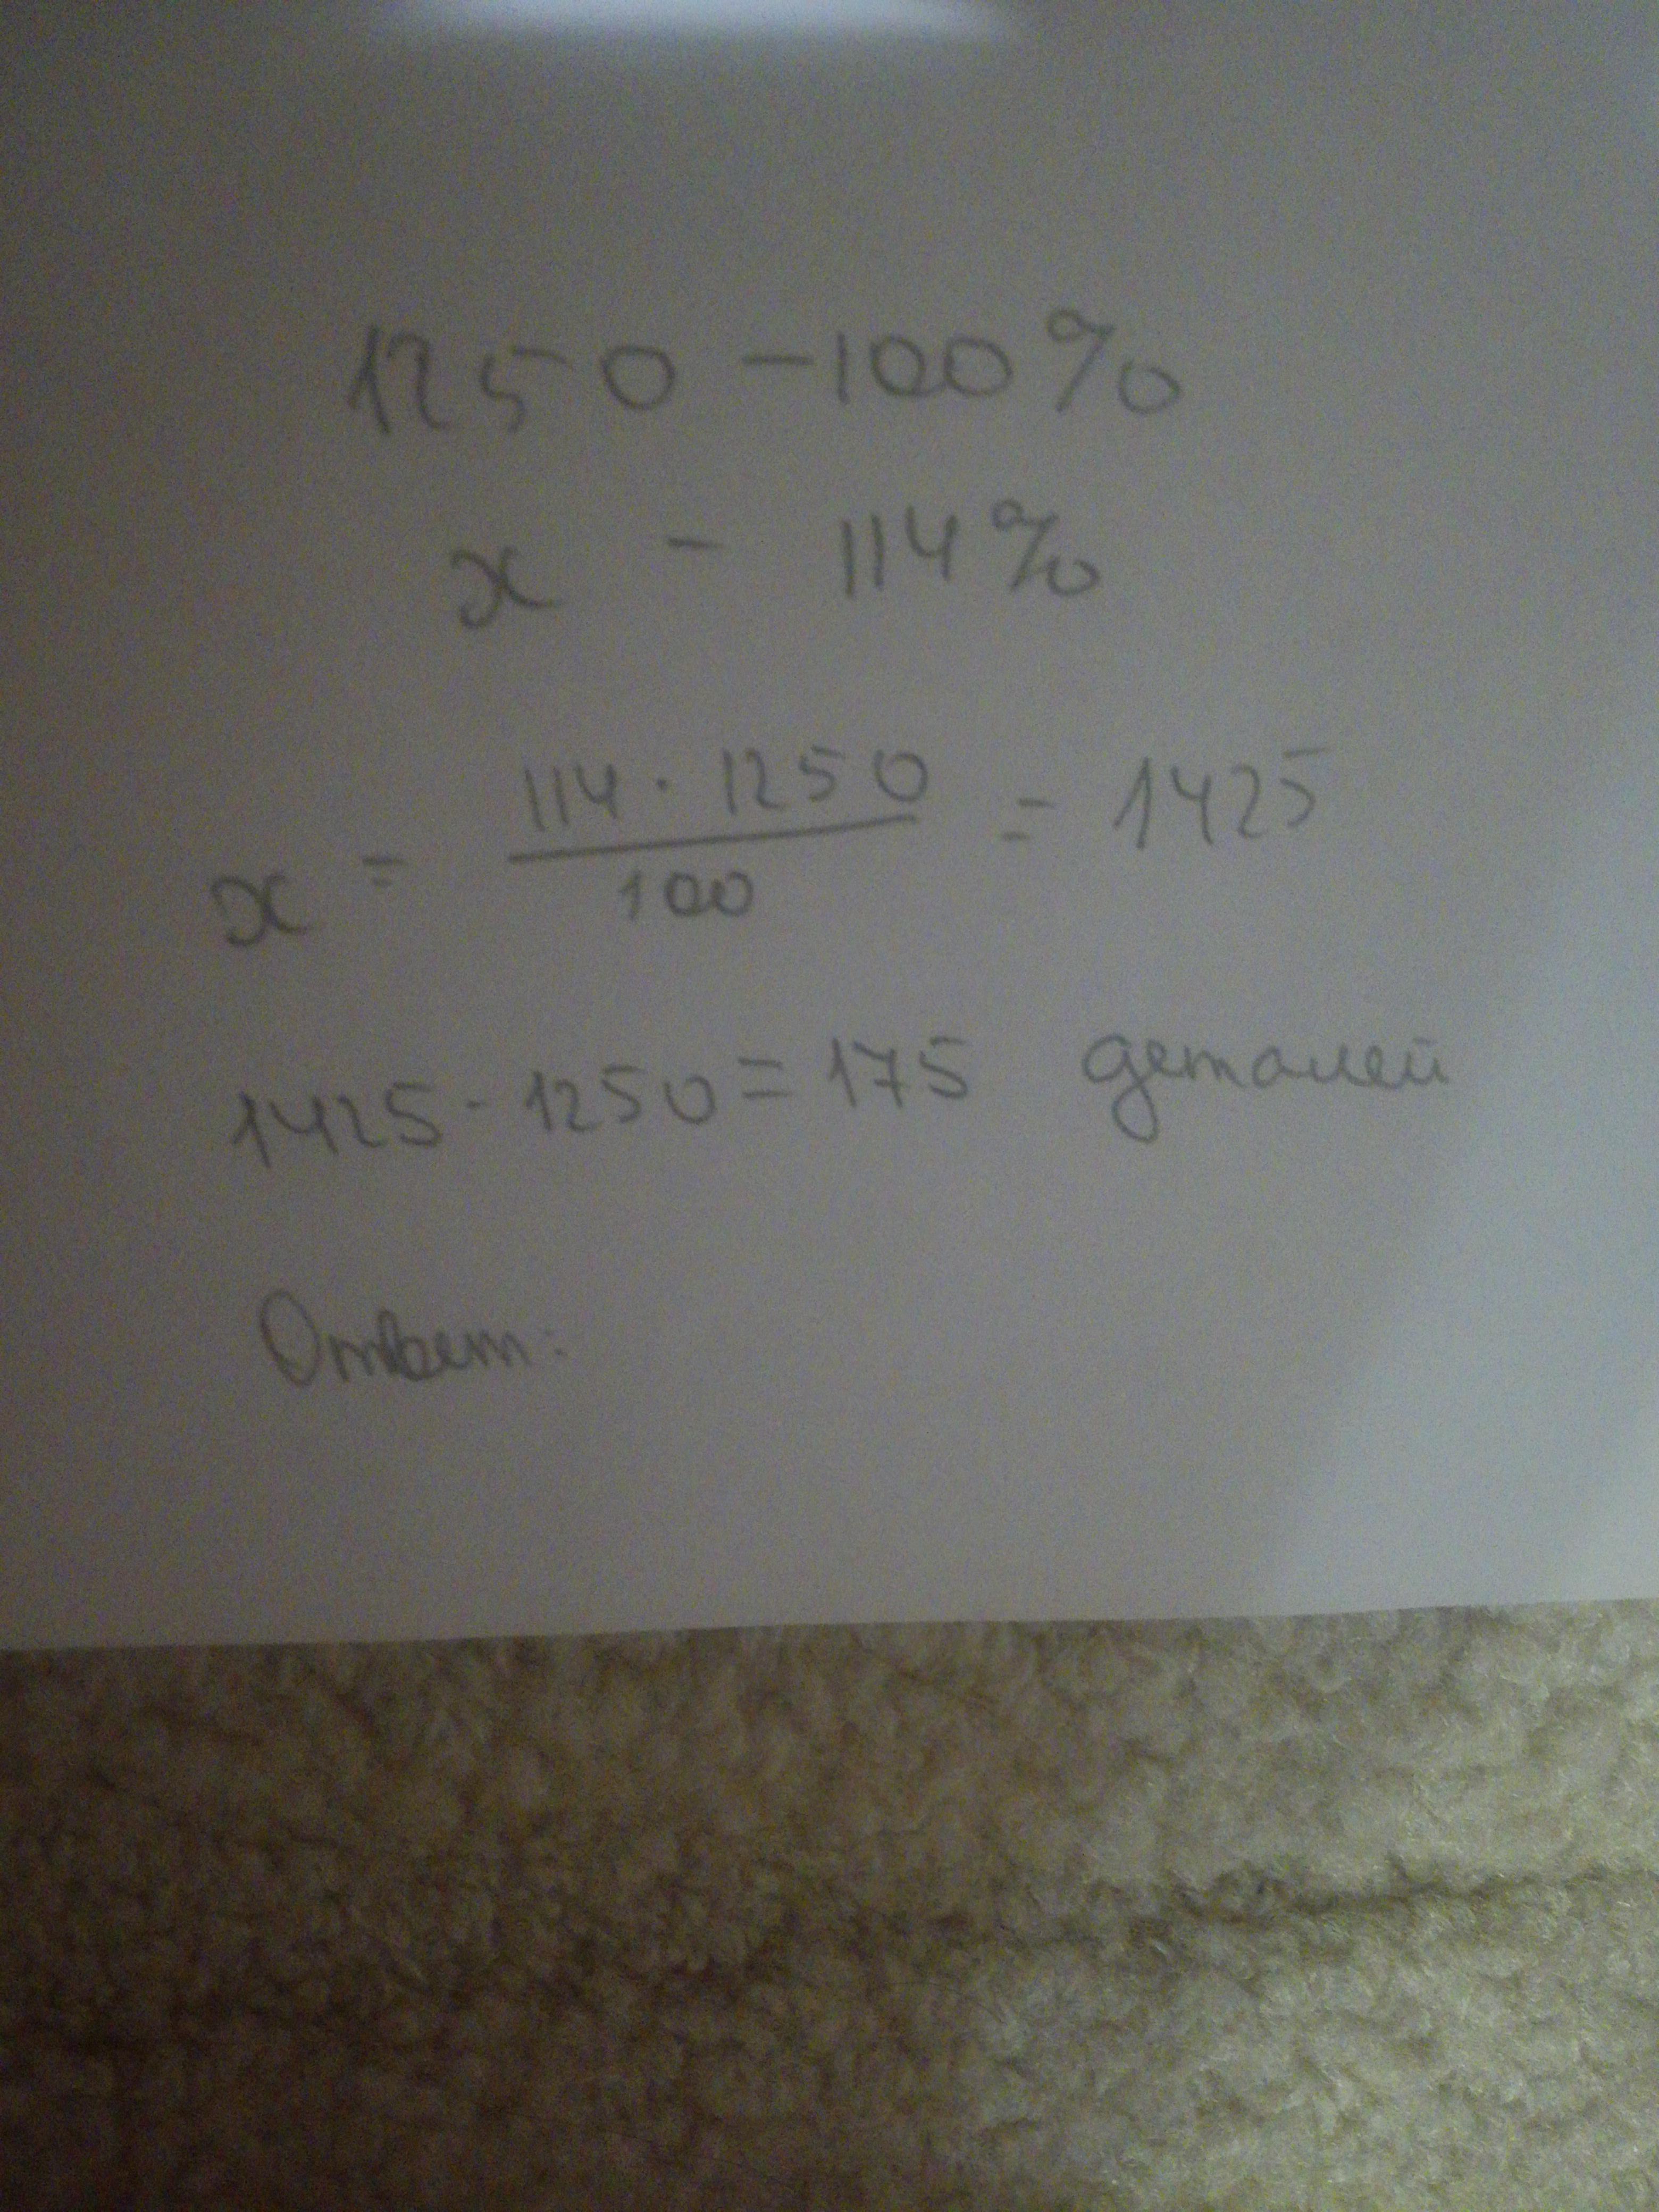 1250 - 100%
x - 114%
x = 114 · 1250 / 100 = 1425
1425 - 1250 = 175 деталей
Ответ: